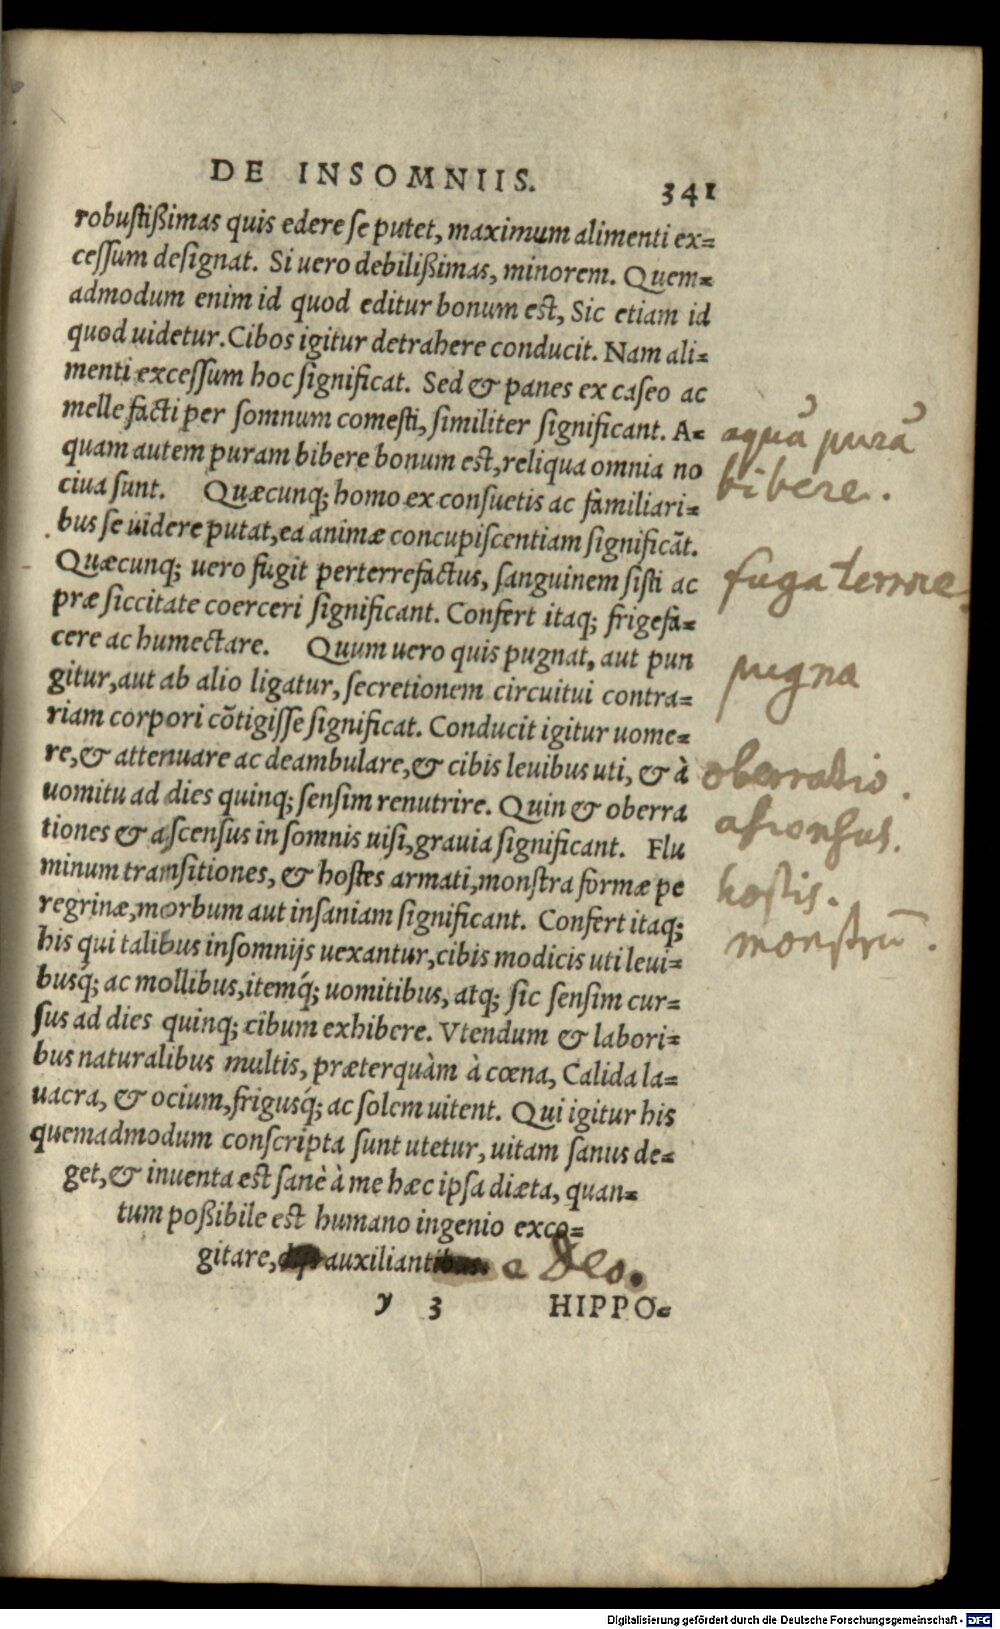 DE INSOMNIIS. 341
robustißimas quis edere se putet, maximum alimenti ex=
cessum designat. Si uero debilißimas, minorem. Quem=
admodum enim id quod editur bonum est, Sic etiam id
quod uidetur. Cibos igitur detrahere conducit. Nam ali=
menti excessum hoc significat. Sed & panes ex caseo ac
melle facti per somnum comesti, similiter significant. A=
quam autem puram bibere bonum est, reliqua omnia no
ciua sunt. Quæcunq; homo ex consuetis ac familiari=
bus se uidere putat, ea animæ concupiscentiam significãt.
Quæcunq; uero fugit perterrefactus, sanguinem sisti ac
præ siccitate coerceri significant. Confert itaq; frigefa=
cere ac humectare. Quum uero quis pugnat, aut pun
gitur, aut ab alio ligatur, secretionem circuitui contra=
riam corpori cõtigisse significat. Conducit igitur uome=
re, & attenuare ac deambulare, & cibis leuibus uti, & à
uomitu ad dies quinq; sensim renutrire. Quin & oberra
tiones & ascensus in somnis uisi, grauia significant. Flu
minum transitiones, & hostes armati, monstra formæ pe
regrinæ, morbum aut insaniam significant. Confert itaq;
his qui talibus insomnijs uexantur, cibis modicis uti leui=
busq́; ac mollibus, itemq́; uomitibus, atq; sic sensim cur=
sus ad dies quinq; cibum exhibere. Vtendum & labori=
bus naturalibus multis, præterquàm à cœna, Calida la=
uacra, & ocium, frigusq́; ac solem uitent. Qui igitur his
quemadmodum conscripta sunt utetur, uitam sanus de=
get, & inuenta est sanè à me hæc ipsa diæta, quan=
tum poßibile est humano ingenio exco=
gitare, auxiliant a Deo.
y 3 HIPPO=
aquā purā
bibere.
fuga terrore.
pugna
oberratio.
hostis.
monstrū.
Digitalisierung gefördert durch die Deutsche Forschungsgemeinschaft - DFG